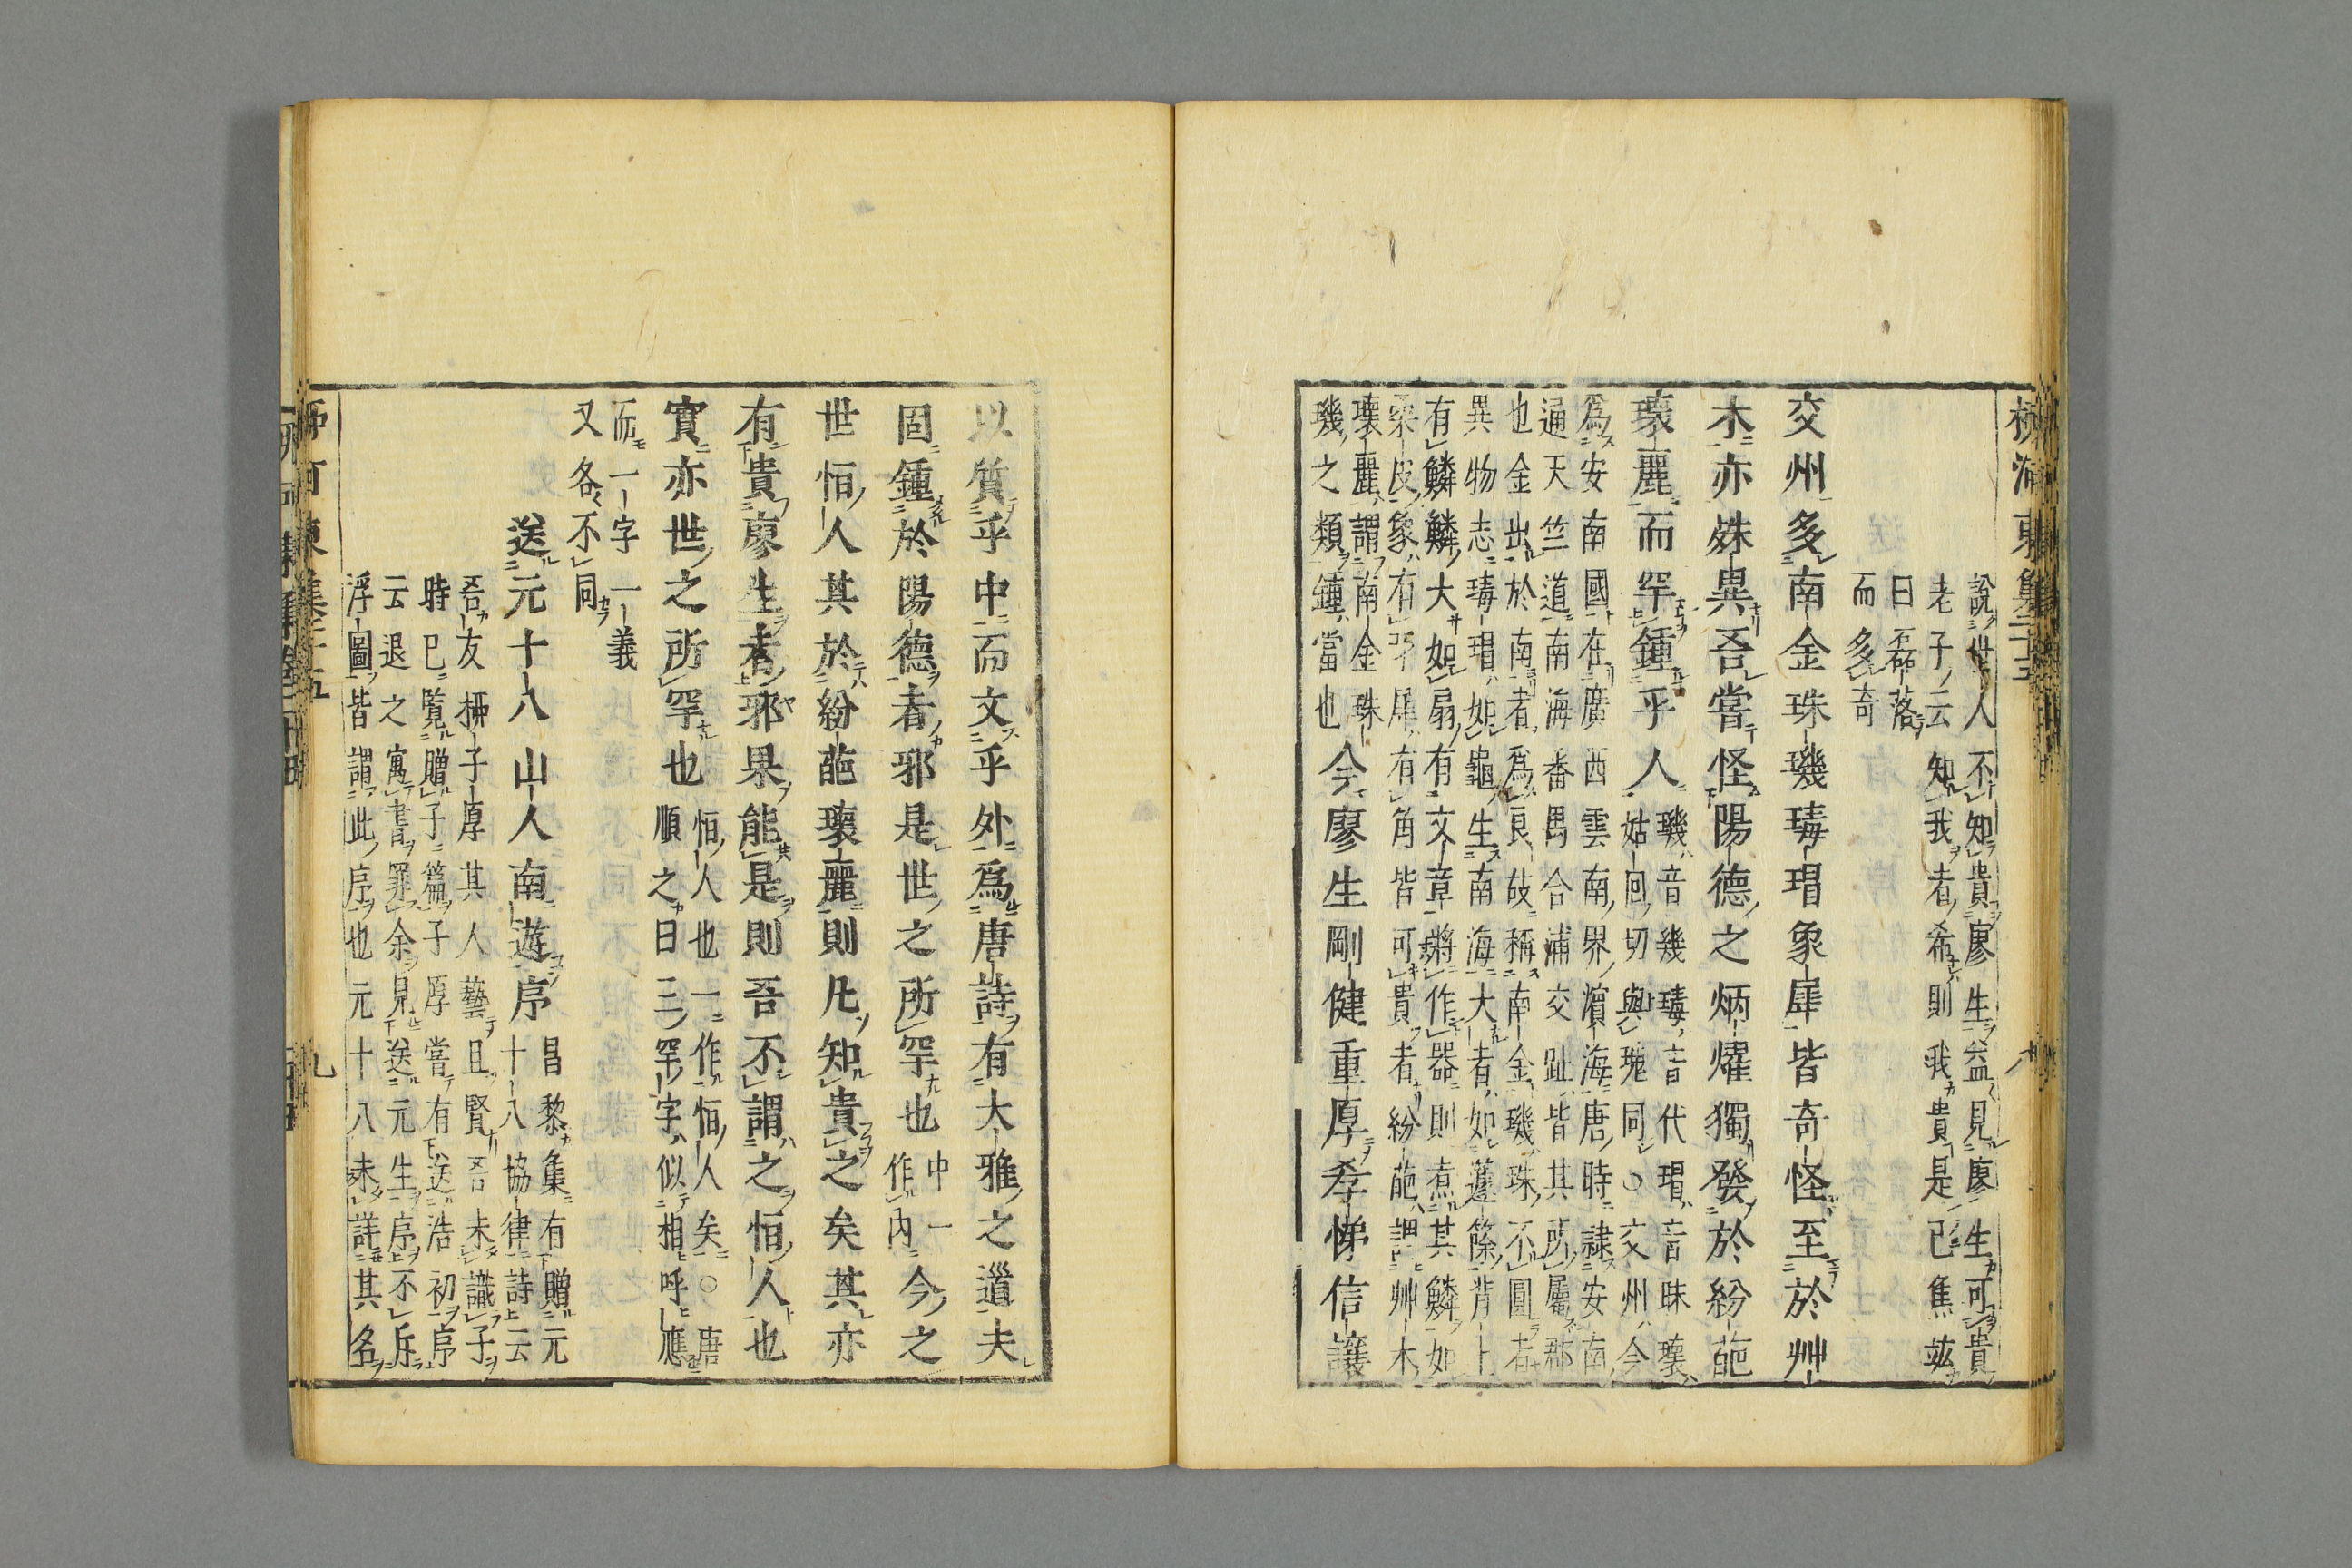 柳河東集二十五 八
說世人不知貴廖生益見廖生可貴
老子云知我者希則我貴是已焦竑
曰磊落
而多奇
交州多南金珠璣瑇瑁象犀皆奇怪至於艸
木亦殊異吾嘗怪陽德之炳燿獨發於紛葩
瓌麗而罕鍾乎人
璣音幾瑇音代瑁音昧瓌
姑回切與瑰同○交州今
爲安南國在廣西雲南界濱海唐時隷安南
通天竺道南海番禺合浦交趾皆其所屬郡
也金出於南者爲良故稱南金璣珠不圓者
異物志瑇瑁如龜生南海大者如籧篨背上
有鱗鱗大如扇有文章將作器則煮其鱗如
柔皮象有牙犀有角皆可貴者紛葩謂艸木
瓌麗謂南金珠
璣之類鍾當也
今廖生剛健重厚孝悌信讓
以質乎中而文乎外爲唐詩有大雅之道夫
固鍾於陽德者邪是世之所罕也
中一
作內
今之
世恒人其於紛葩瓌麗則凡知貴之矣其亦
有貴廖生者邪果能是則吾不謂之恒人也
實亦世之所罕也
恒人也一作恒人矣○唐
順之曰三罕字似相呼應
而一字一義
又各不同
送元十八山人南遊序
昌黎集有贈元
十八協律詩云
吾友柳子厚其人藝且賢吾未識子
時已覽贈子篇子厚嘗有送浩初序
云退之寓書罪余見送元生序不斥
浮圖皆謂此序也元十八未詳其名
柳河東集二十五 九